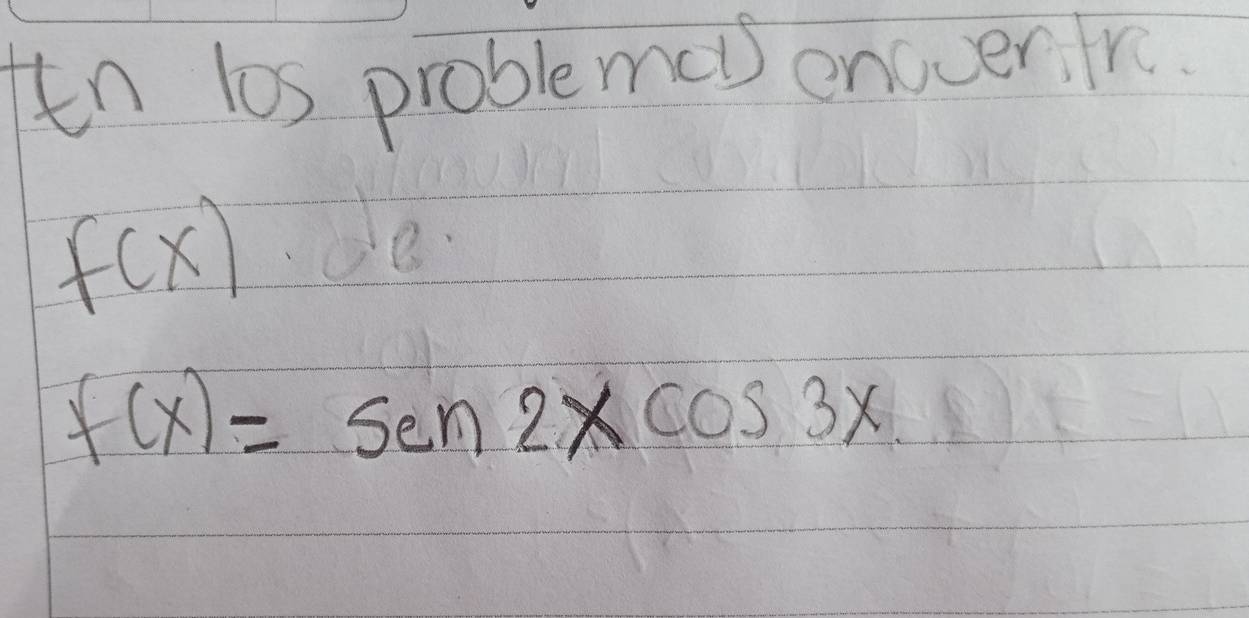 En los problemas encuentra.
f(x). de.
f(x) = sen 2x cos 3x.